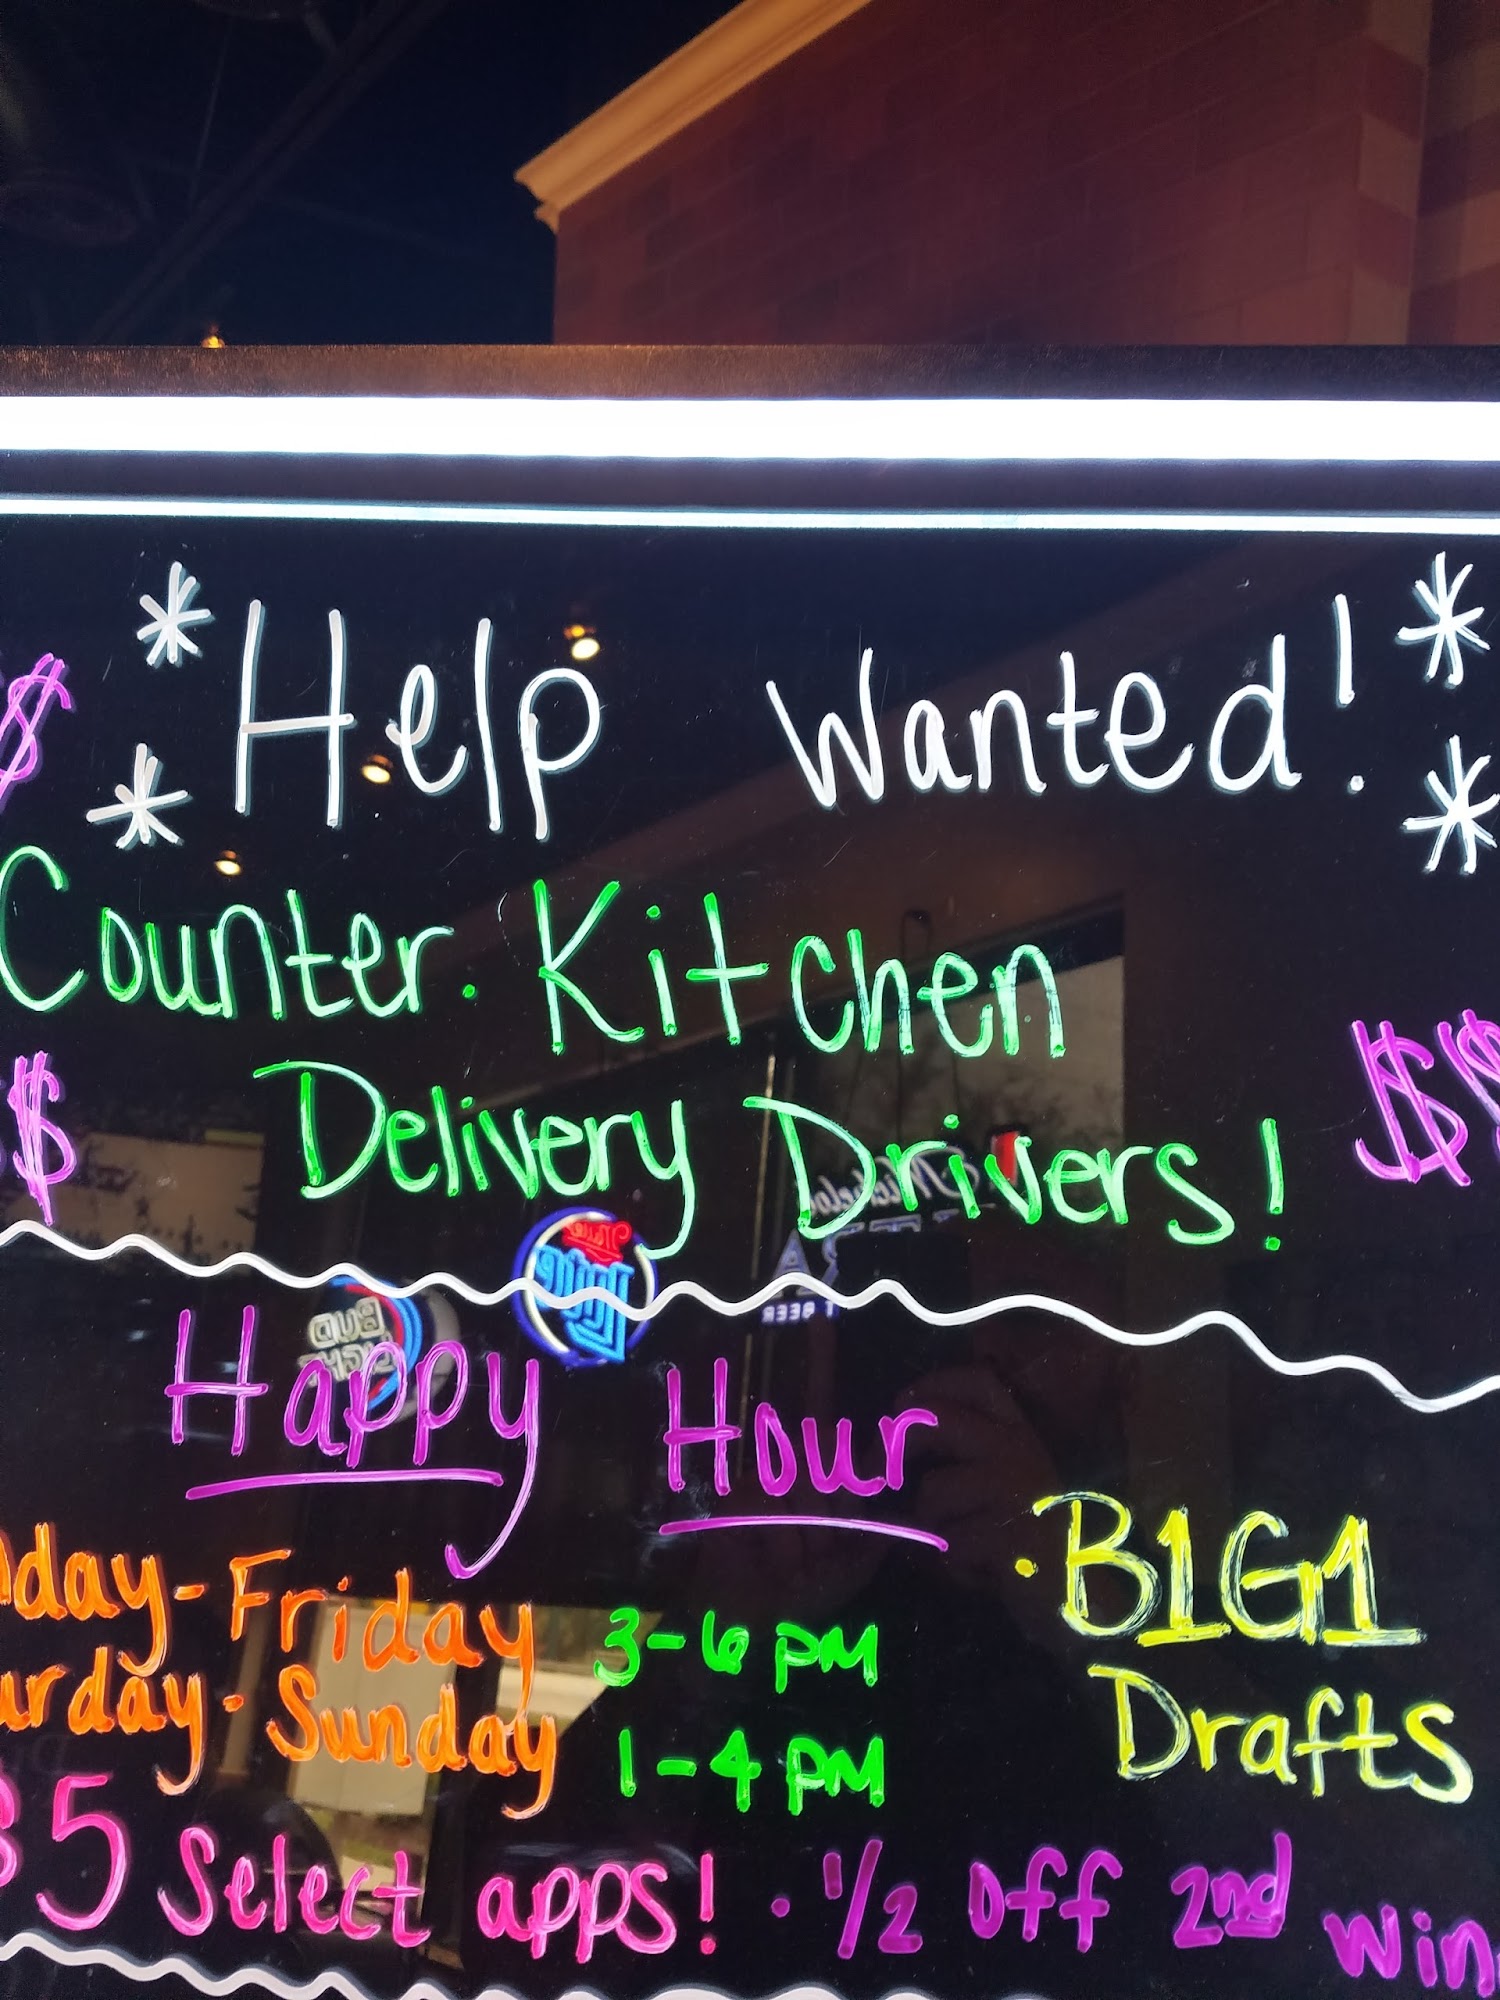 * Help Wanted! *
$ * *
Counter. Kitchen
$$ Delivery Drivers! $$
Happy Hour
day-Friday 3-6 pm
urday-Sunday 1-4 pm
· B1G1
Drafts
$5 Select apps! · 1/2 off 2nd Win
Lite
BUD
LIGHT